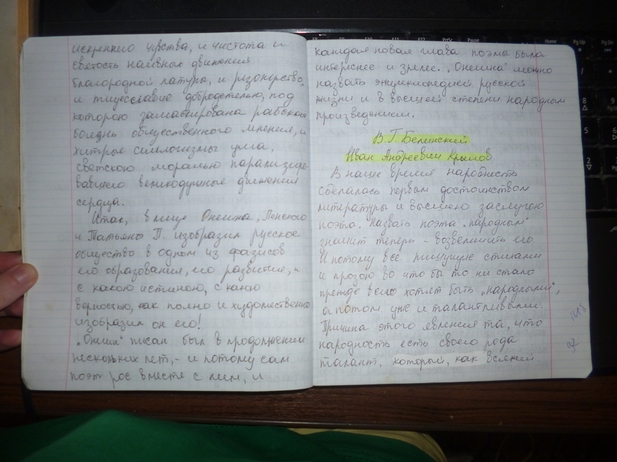 искренние чувства, и чистота и
святость наивные движения
благородной натуры, и резонерство,
и тщеславие добродетелью, под
которою замаскирована рабская
боязнь общественного мнения, и
хитрые силлогизмы ума,
светскою моралью парализиро
вавшего великодушные движения
сердца.
Итак, в лице Онегина, Ленского
и Татьяны П. изобразил русское
общество в одном из фазисов
его образования, его развития, -
с какою истиной, с какою
верностью, как полно и художественно
изобразил он его!
„Онегин" писан был в продолжении
нескольких лет, - и потому сам
поэт рос вместе с ним, и
каждая новая глава поэмы была
интереснее и зрелее. „Онегина" можно
назвать энциклопедией русской
жизни и в высшей степени народным
произведением.
В.Г. Белинский
Иван Андреевич Крылов
В наше время народность
сделалась первым достоинством
литературы и высшею заслугою
поэта. Назвать поэта „народным"
значит теперь - возвеличить его
И потому все пишущие стихами
и прозою во что бы то ни стало
прежде всего хотят быть „народными",
а потом уже и талантливыми.
Причина этого явления та, что
народность есть своего рода
талант, который, как всякий